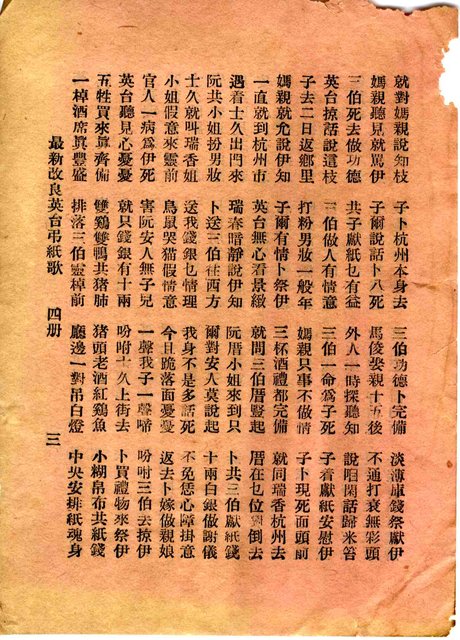 就對媽親說知枝　子卜杭州本身去　三伯功德卜完備　淡薄庫錢祭獻伊
媽親聽見就罵伊　子爾說話卜八死　馬俊娶親十五後　不通打衰無彩頭
三伯死去做功德　共子獻紙乜有益　外人一時探聽知　說咱閑話歸米笞
英台掠話說這枝　三伯做人有情意　三伯一命為子死　子着獻紙安慰伊
子去二日返鄉里　打粉男妝一般年　媽親只事不做情　子卜現死面頭前
媽親就允說伊知　子爾有情卜祭伊　三杯酒禮都完備　就同瑞香杭州去
一直就到杭州市　英台無心看景緻　就問三伯厝豎起　厝在乜位倒去
遇着士久出門來　瑞春暗靜說伊知　阮厝小姐來到只　卜共三伯獻紙錢
阮共小姐扮男妝　卜送三伯往西方　爾對安人莫說起　十兩白銀做謝儀
士久就叫瑞香姐　送我錢銀乜情理　我身不是多話死　不免恁心障掛意
小姐假意來靈前　鳥鼠哭猫假情意　今且跪落面憂憂　返去卜嫁做親娘
官人一病為伊死　害阮安人無子兒　一聲我子一聲啼　吩咐三伯去掠伊
英台聽見心憂憂　就只錢銀有十兩　吩咐士久上街去　卜買禮物來祭伊
五牲買來眞齊備　雙鷄雙鴨共猪肺　猪頭老酒紅鷄魚　小糊帛布共紙錢
一棹酒席眞豐盛　排落三伯靈棹前　廳邊一對吊白燈　中央安排紙魂身
最新改良英台弔紙歌　四册　三